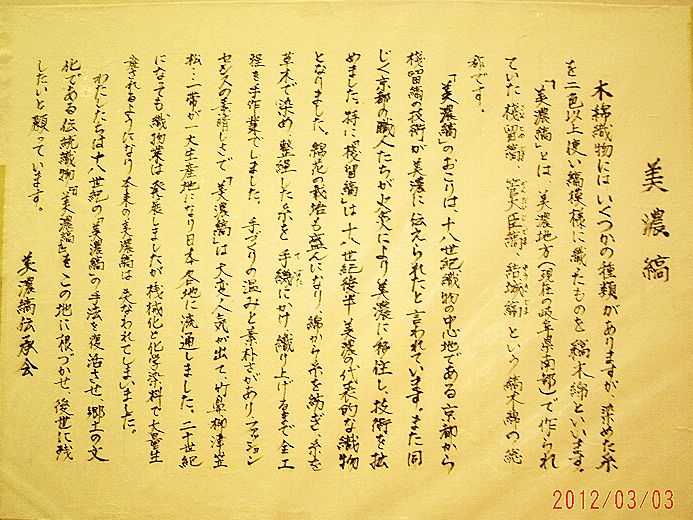 美濃縞
木綿織物にはいくつかの種類がありますが、染めた糸
を二色以上使い縞模様に織ったものを縞木綿といいます。
「美濃縞」とは、美濃地方(現在の岐阜県南部)で作られ
ていた桟留縞、菅大臣縞、結城縞という縞木綿の総
称です。
「美濃縞」のおこりは、十八世紀織物の中心地である京都から
桟留縞の技術が美濃に伝えられたと言われています。また同
じく京都の職人たちが火災により美濃に移住し、技術を拡
めました。特に「桟留縞」は十八世紀後半美濃の代表的な織物
となりました。綿花の栽培も盛んになり、綿から糸を紡ぎ、糸を
草木で染め、整経した糸を手機にかけ織り上げるまで全工
てばた
程を手作業でしました。手づくりの温みと素朴さがありファッション
センスの素晴しさで「美濃縞」は大変人気が出て竹鼻、柳津、笠
松…一帯が一大生産地になり日本各地に流通しました。二十世紀
になっても織物業は発展しましたが機械化と化学染料で大量生
産されるようになり、本来の美濃縞は失なわれてしまいました。
わたしたちは十八世紀の「美濃縞」の手法を復活させ、郷土の文
化である伝統織物「美濃縞」をこの地に根づかせ、後世に残
したいと願っています。
美濃縞伝承会
2012/03/03